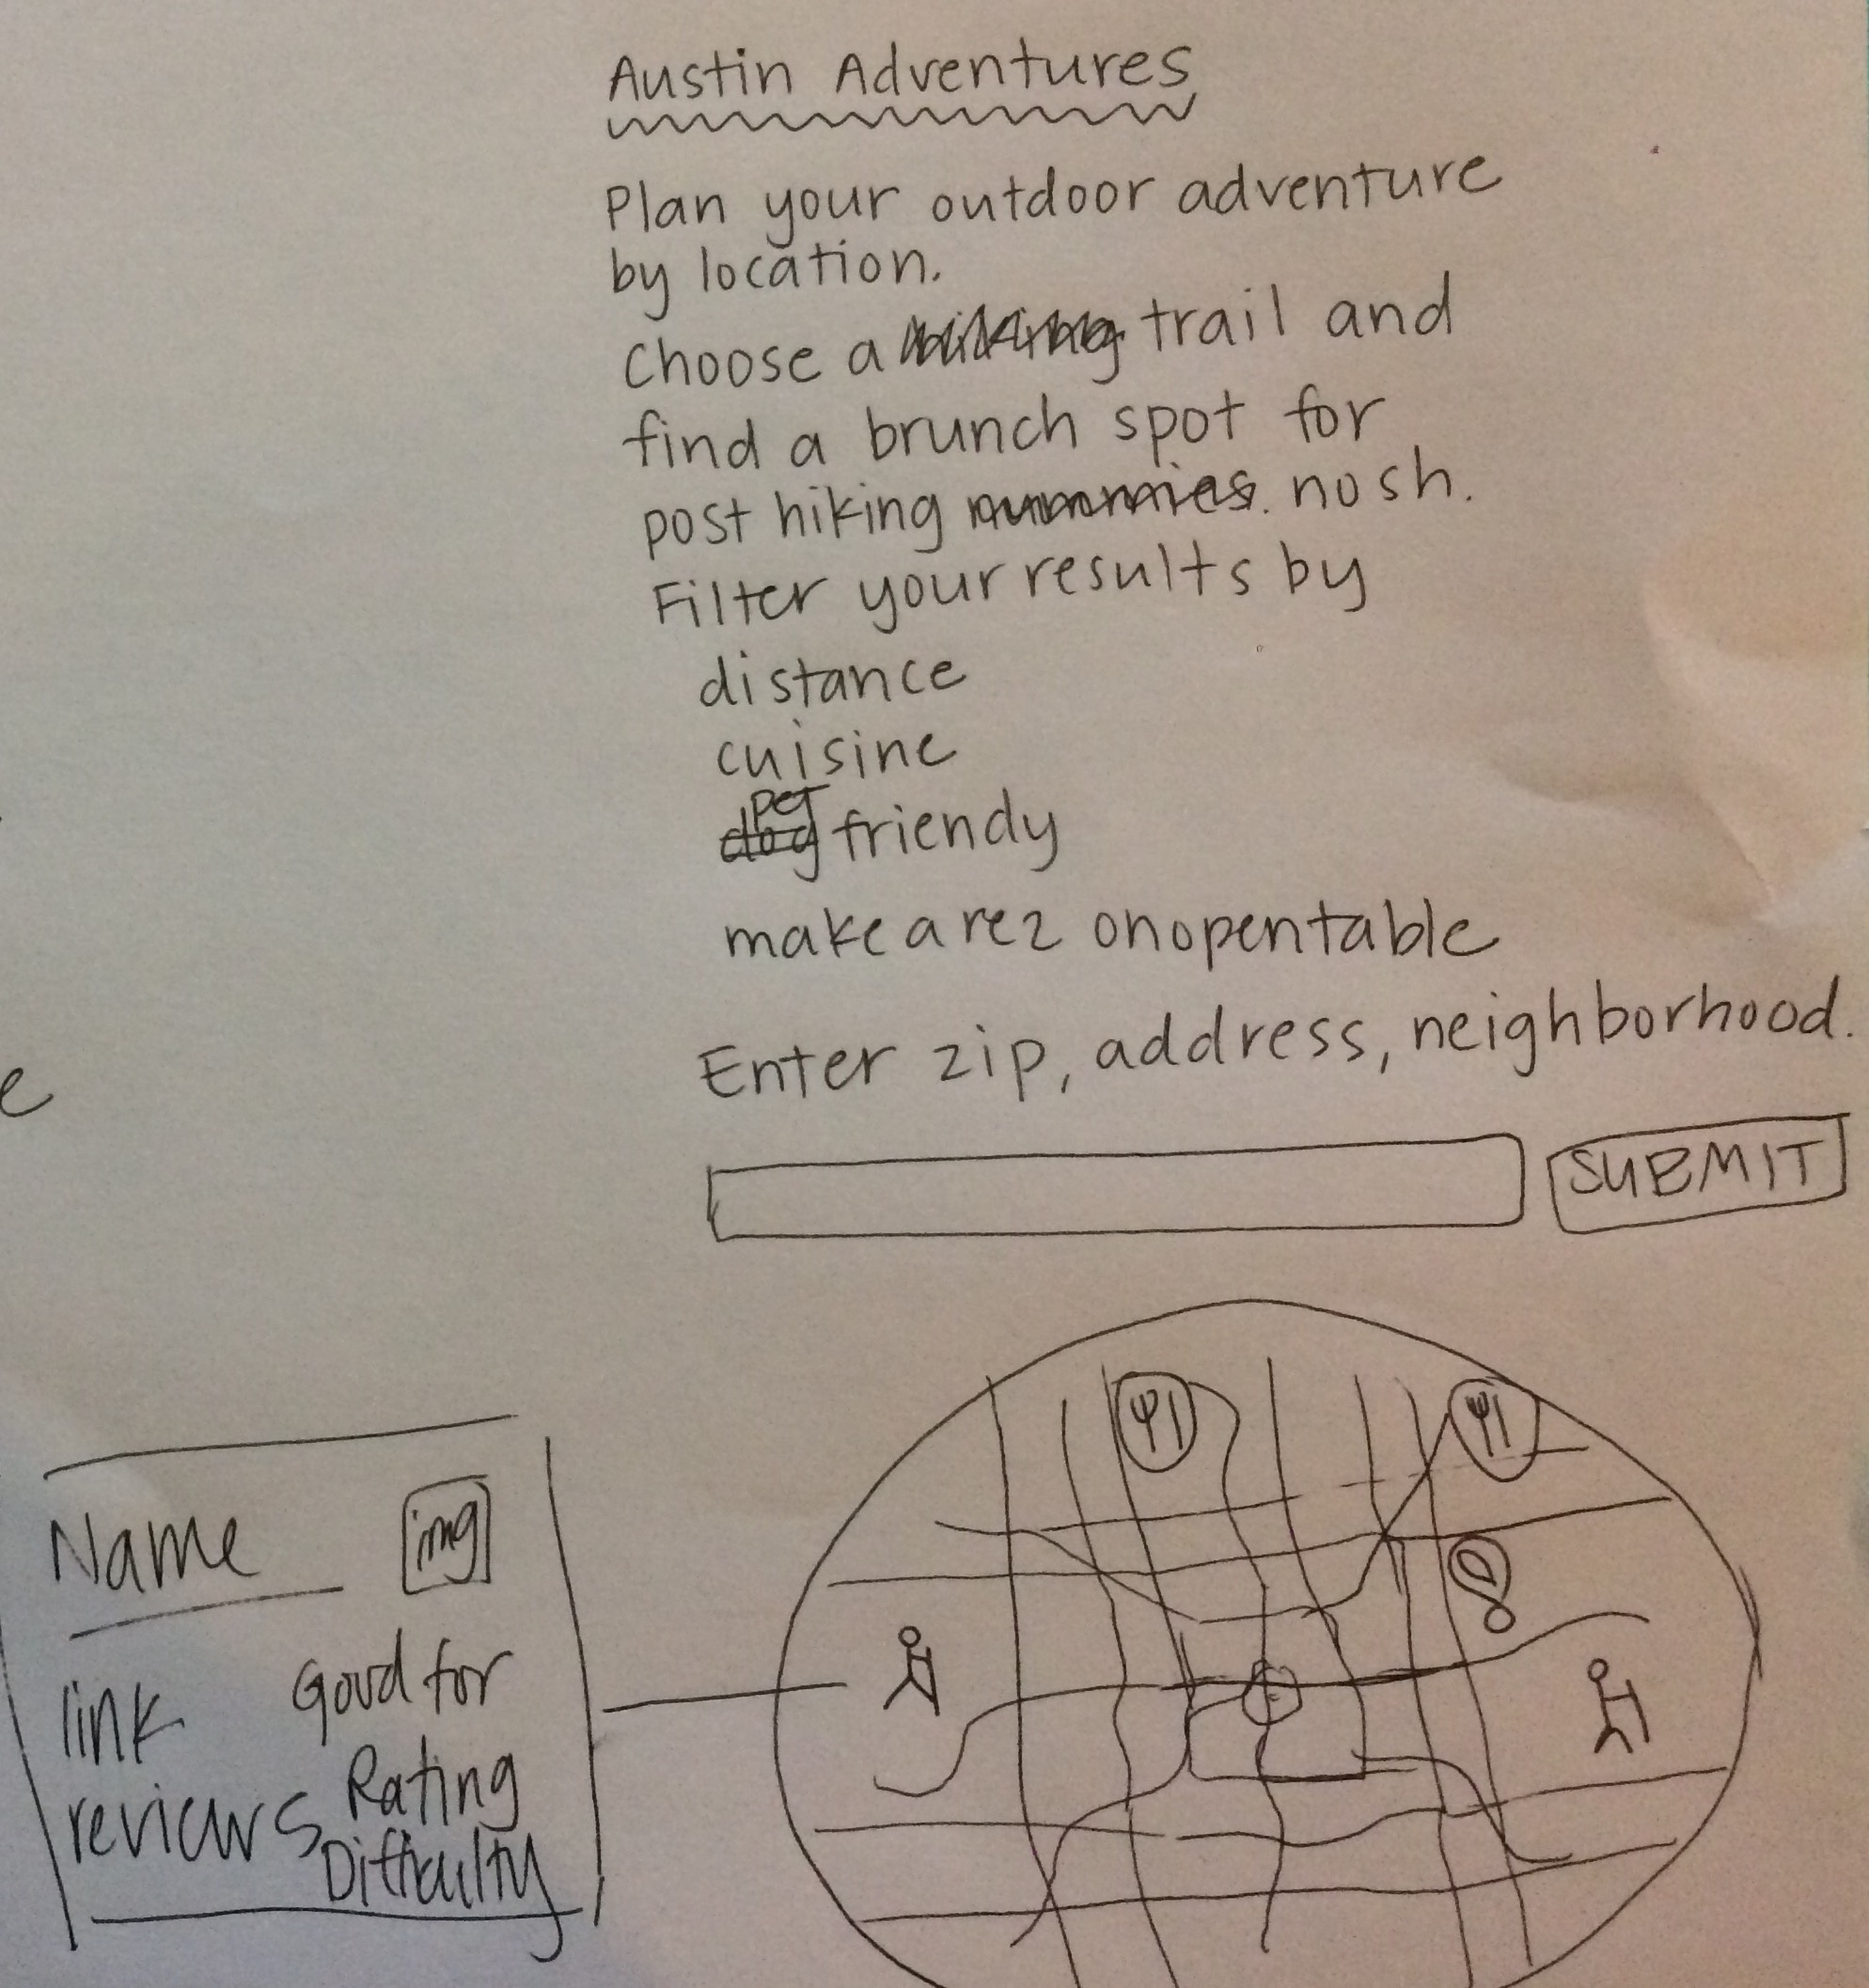 Austin Adventures
Plan your outdoor adventure
by location.
Choose a trail and
find a brunch spot for
post hiking nummies. nosh.
Filter your results by
distance
cuisine
pet
dog friendy
make a rez on opentable
Enter zip, address, neighborhood.
SUBMIT
Name img
link Good for
reviews Rating
Difficulty
e